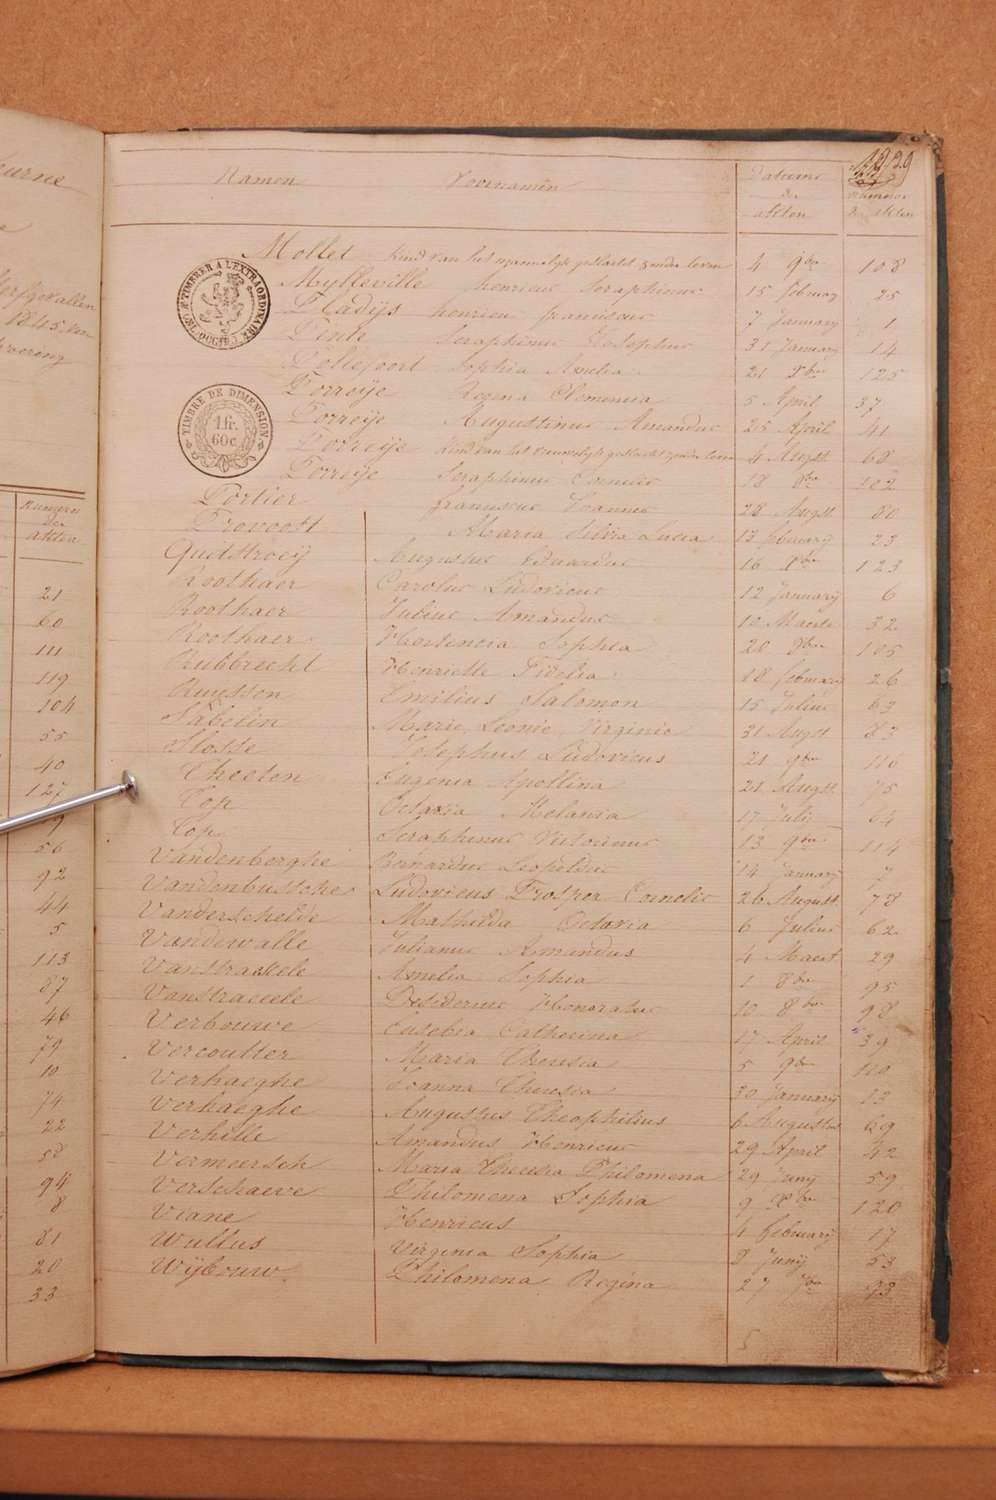 eurne
e
1845, en
voering
Numeros
der
akten
21
60
111
119
104
55
40
127
9
56
92
44
5
113
87
46
79
10
74
22
58
94
8
81
20
33
29
Namen Voornamen Datums der akten Numeros der akten
Mollet kind van het mannelijk geslacht zonder leven 4 9ber 108
Mylleville henricus Seraphinus 15 february 25
Pladijs henricus franciscus 7 January 1
Seraphinus Josephus 31 January 14
Pollefoort Sophia Amelia 21 Xber 125
Porreije Regina Clemencia 5 April 37
Porreije Augustinus Amandus 25 April 41
Porreije kind van het vrouwelijk geslacht zonder leven 4 Augst 68
Porreije Seraphinus 18 8ber 102
Portier franciscus Joannes 28 Augst 80
Provoost Maria Silvia Lucia 13 february 23
Quidttroeij Augustus Eduardus 16 Xber 123
Roothaer Carolus Ludovicus 12 January 6
Roothaer Julius Amandus 12 Maerte 32
Roothaer Hortencia Sophia 20 8ber 105
Rubbrecht Henriette Fidelia 18 february 26
Ruyssen Emilius Salomon 15 Julius 63
Sabelin Marie Leonie Virginie 31 Augst 83
Slosse Josephus Ludovicus 21 9ber 116
Theeten Eugenia Apollina 21 Augst 75
Top Octavia Melania 17 Juli 64
Top Seraphinus Victorinus 13 9ber 114
Vandenberghe Bernardus Leopoldus 14 January 7
Vandenbussche Ludovicus Prosper Cornelis 26 August 78
Vanderschelde Mathilda Octavia 6 Julius 62
Vandewalle Julianus Amandus 4 Maert 29
Vanstraekele Amelia Sophia 1 8ber 95
Vanstraceele Desiderius Honoratus 10 8ber 98
Verbouwe Eusebia Catherina 17 April 39
Vercoutter Maria Theresia 5 9ber 110
Verhaeghe Joanna Theresia 30 January 13
Verhaeghe Augustus Theophilius 6 Augustus 69
Verhille Amandus Henricus 29 April 42
Vermeersch Maria Theresia Philomena 29 Junij 59
Verschaeve Philomena Sophia 9 Xber 120
Viane Henricus 4 february 17
Wullus Virginia Sophia 8 Junij 53
Wijbouw Philomena Regina 27 7ber 93
5
TIMBRE DE DIMENSION
1 fr.
60 c.